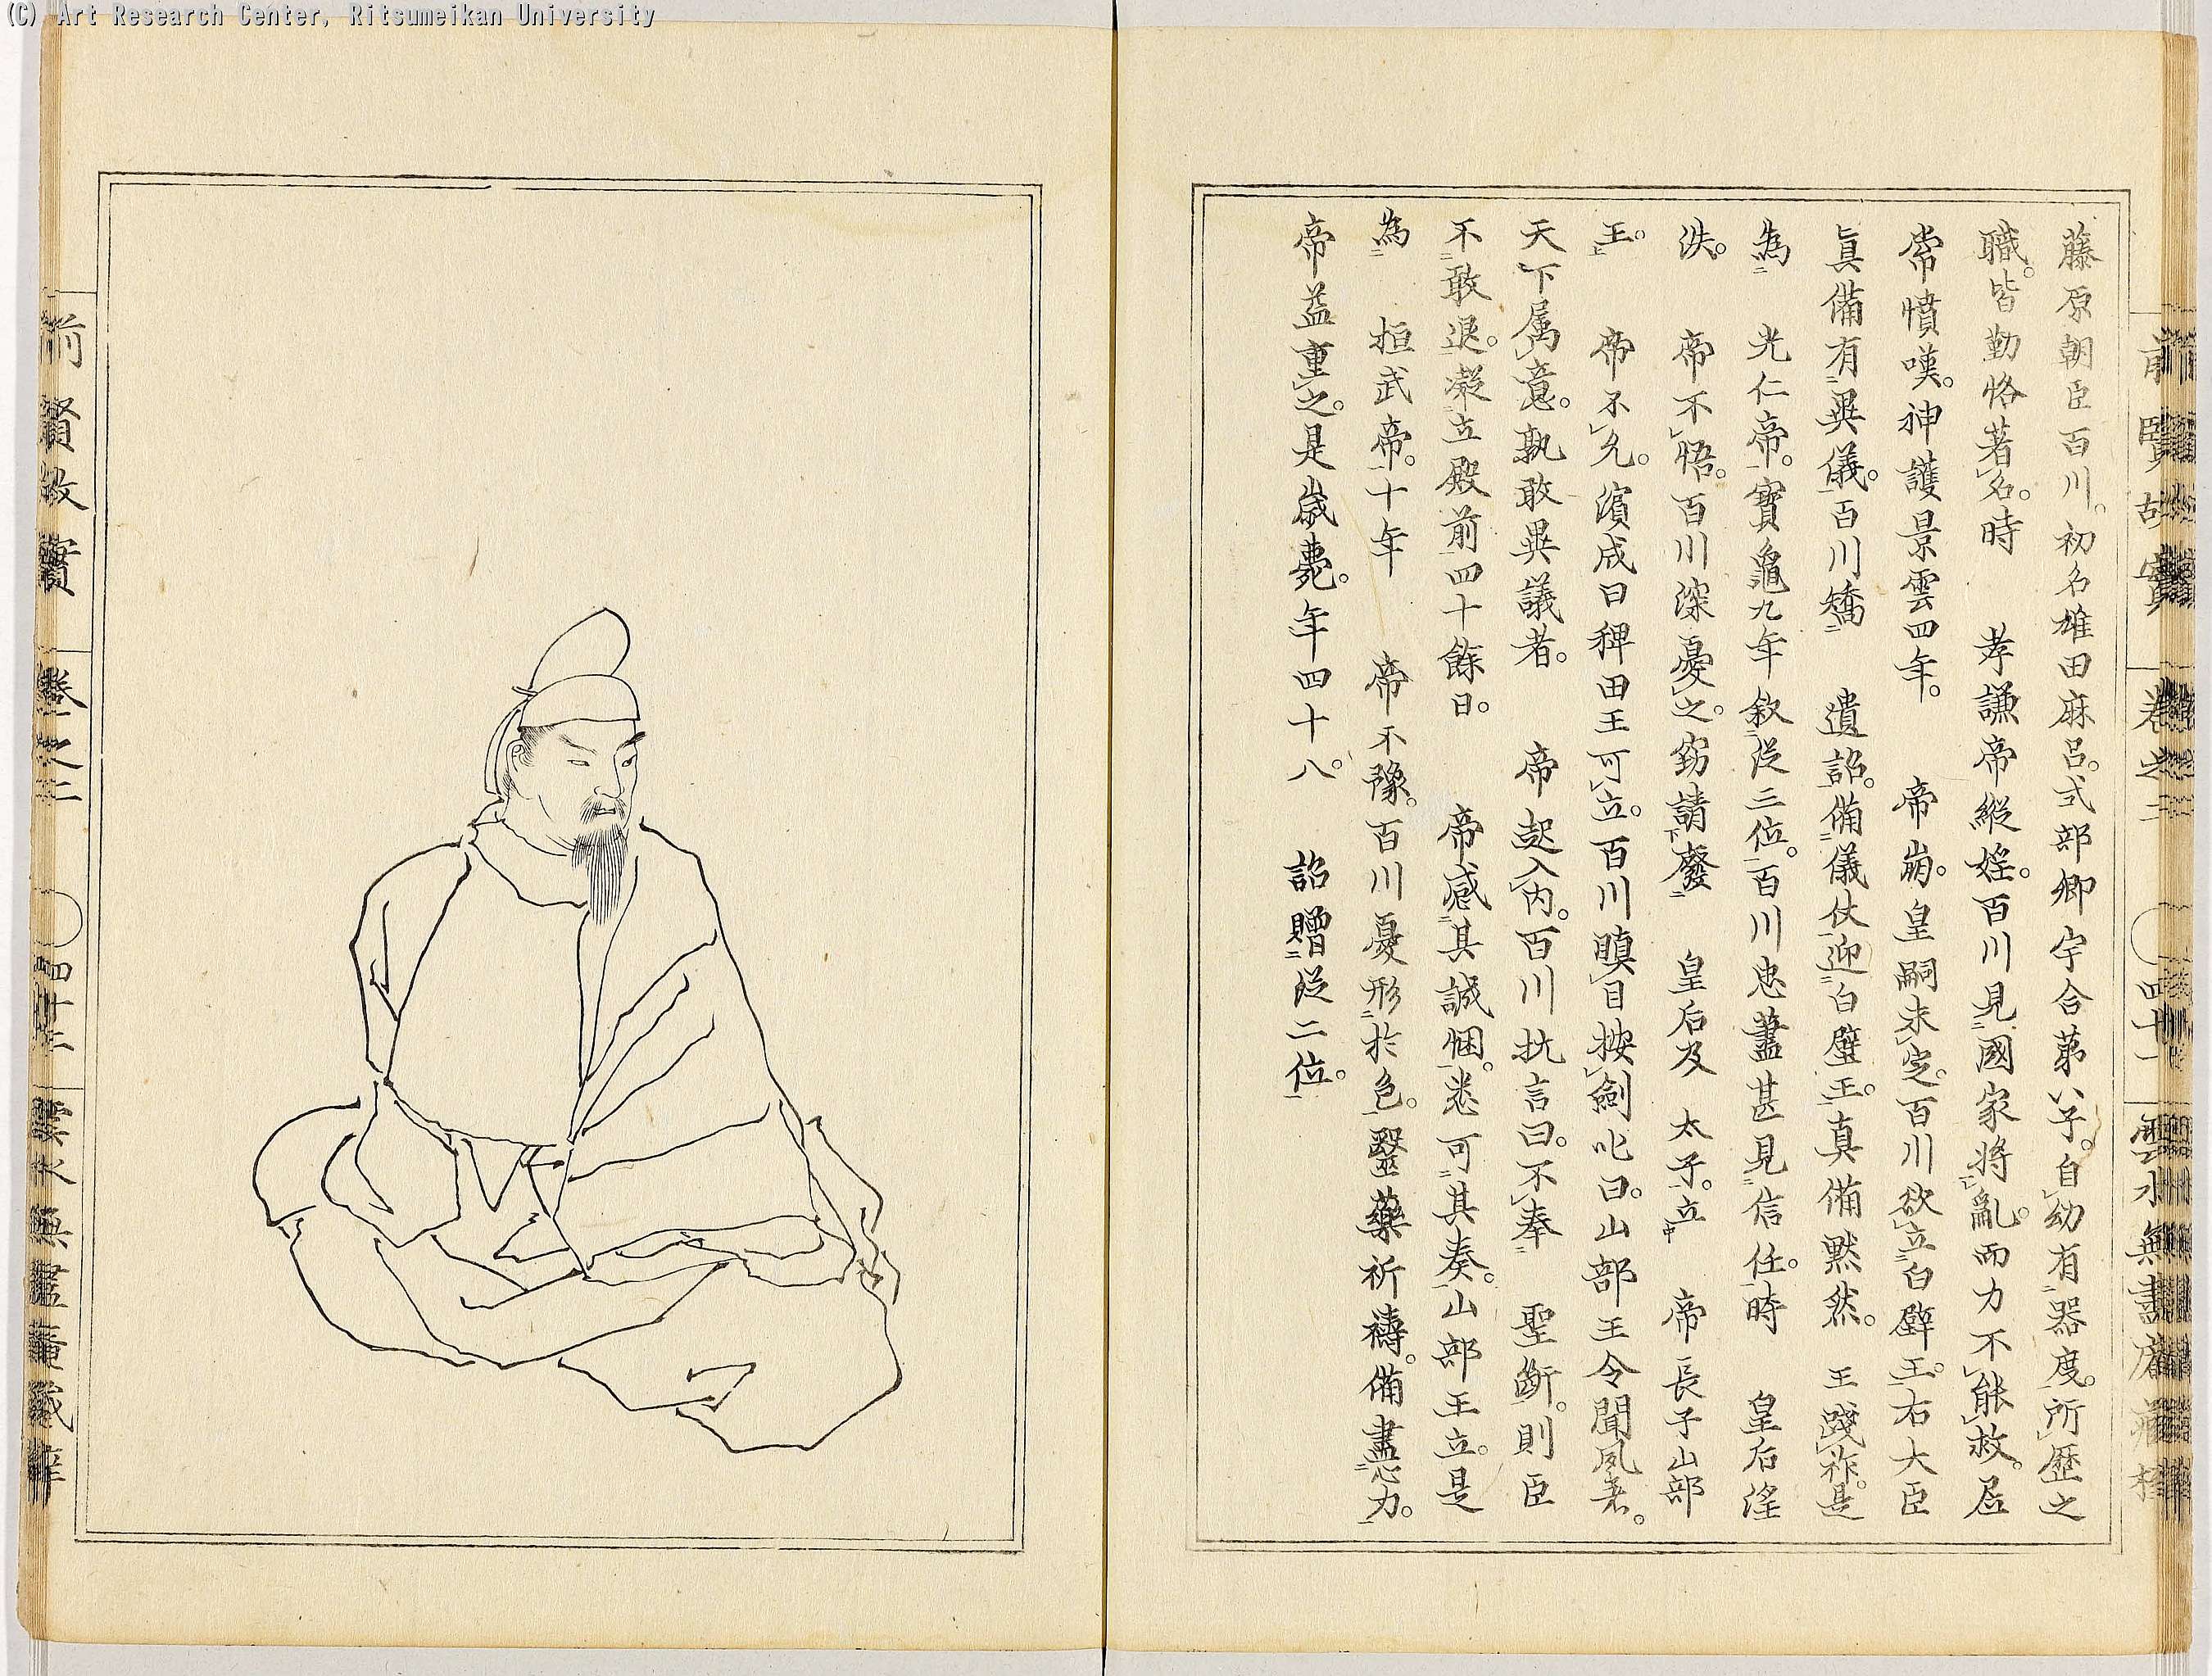 (C) Art Research Center, Ritsumeikan University
前賢故實 卷之二 四十一 雲水無盡庵藏梓
藤原朝臣百川。初名雄田麻呂。式部卿宇合第八子。自幼有器度。所歷之
職。皆勤恪著名。時 孝謙帝縱婬。百川見國家將亂。而力不能救。居
常憤嘆。神護景雲四年。 帝崩。皇嗣未定。百川欲立白壁王。右大臣
眞備有異儀。百川矯 遺詔。備儀仗迎白璧王。真備默然。 王踐祚。是
為 光仁帝。寶龜九年敘從三位。百川忠藎甚見信任。時 皇后淫
泆。 帝不悟。百川深憂之。窈請廢 皇后及 太子。立 帝長子山部
王。 帝不允。濱成曰稗田王可立。百川瞋目按劍叱曰。山部王令聞夙著。
天下属意。孰敢異議者。 帝起入內。百川抗言曰。不奉 聖斷。則臣
不敢退。凝立殿前四十餘日。 帝感其誠悃。遂可其奏。山部王立。是
為 桓武帝。十年 帝不豫。百川憂形於色。醫藥祈禱。備盡心力。
帝益重之。是歳薨。年四十八。 詔贈從二位。
前賢故實 卷之二 四十二 雲水無盡菴藏梓